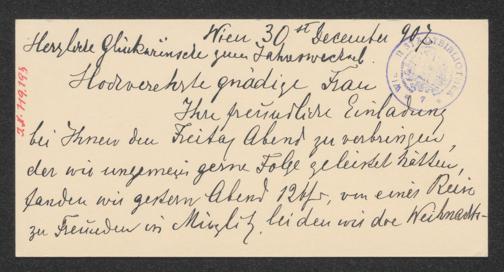 Wien, 30st December 907
Herzliche Glückwünsche zum Jahreswechsel.
Hochverehrte gnädige Frau
Ihre freundliche Einladung
bei Ihnen den Freitag Abend zu verbringen,
der wir ungemein gerne Folge geleistet hätten,
fanden wir gestern Abend 12 Uhr, von einer Reise
zu Freunden in Müglitz, bei den wir die Weihnachts-